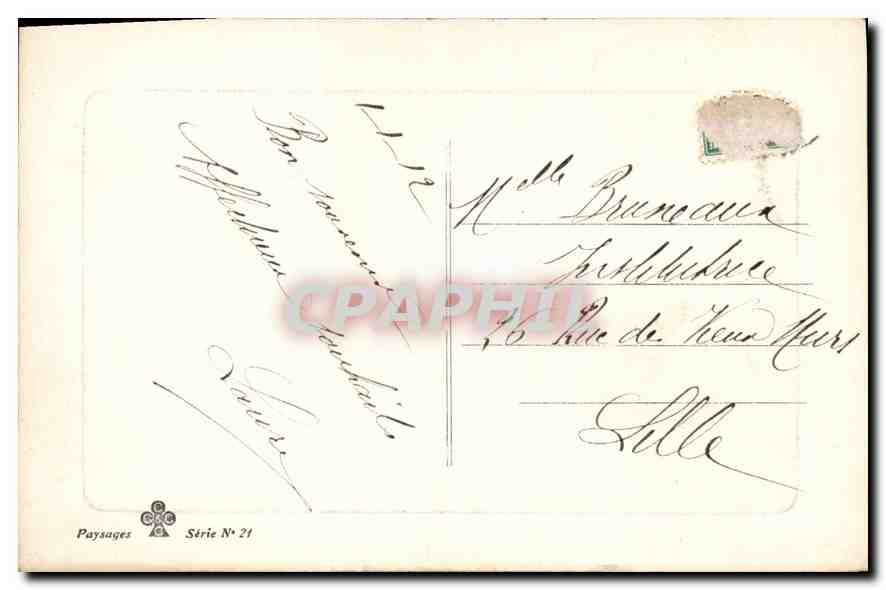 1-1-12
Bon souvenir
Affectueux souhaits
Laure
Melle Bruneaux
Institutrice
26 Rue des Vieux Murs
Lille
CPAPHIL
Paysages CCCC Série N° 21